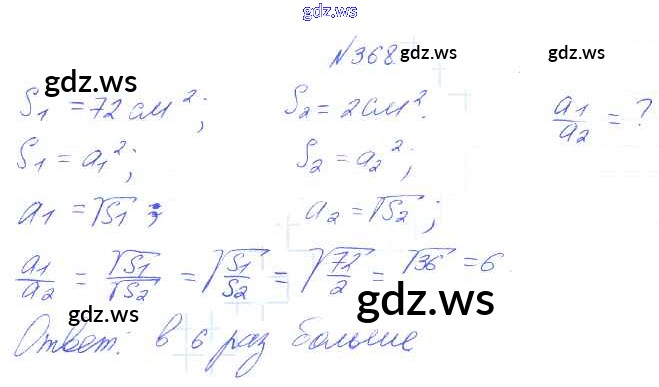 gdz.ws
№368 gdz.ws gdz.ws
gdz.ws
S₁ = 72 см²; S₂ = 2 см². a₁/a₂ = ?
S₁ = a₁²; S₂ = a₂²;
a₁ = √S₁; a₂ = √S₂;
a₁/a₂ = √S₁/√S₂ = √(S₁/S₂) = √(72/2) = √36 = 6
gdz.ws gdz.ws
Ответ: в 6 раз больше
gdz.ws